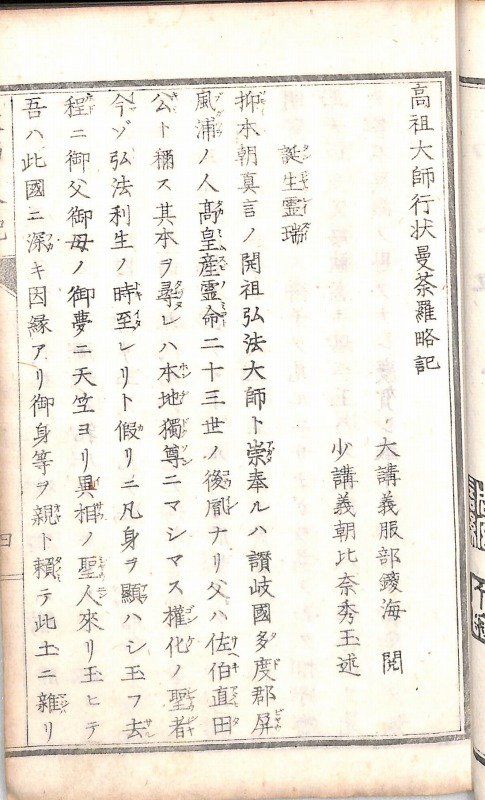 高祖大師行状曼荼羅略記
大講義服部鑁海 閲
少講義朝比奈秀玉述
誕生霊瑞
抑本朝真言ノ開祖弘法大師ト崇奉ルハ讃岐國多度郡屏
風浦ノ人髙皇産霊命二十三世ノ後胤ナリ父ハ佐伯直田
公ト稱ス其本ヲ尋レハ本地獨尊ニマシマス權化ノ聖者
今ゾ弘法利生ノ時至レリト假リニ凡身ヲ顯ハシ玉フ去
程ニ御父御母ノ御夢ニ天竺ヨリ異相ノ聖人來リ玉ヒテ
吾ハ此國ニ深キ因縁アリ御身等ヲ親ト頼テ此土ニ雜リ
四